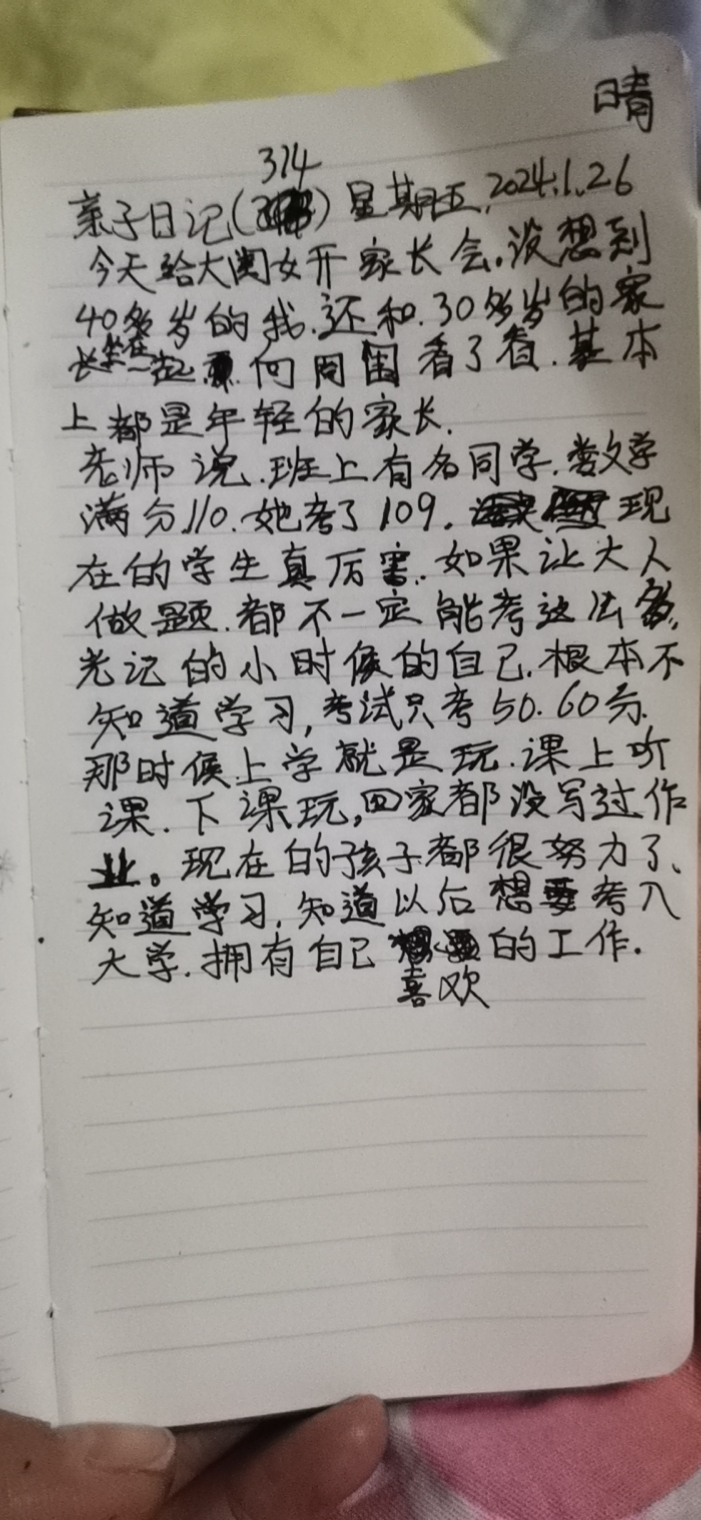 晴
314
亲子日记( ) 星期五, 2024.1.26
今天给大闺女开家长会。没想到
40多岁的我.还和.30多岁的家
长坐在一起. 向周围看了看.基本
上都是年轻的家长.
老师说.班上有名同学.数学
满分110.她考了109. 现
在的学生真厉害.如果让大人
做题.都不一定能考这么多,
光记的小时候的自己.根本不
知道学习,考试只考50.60分.
那时候上学就是玩.课上听
课.下课玩,回家都没写过作
业。现在的孩子都很努力了、
知道学习.知道以后想要考入
大学.拥有自己 的工作.
喜欢